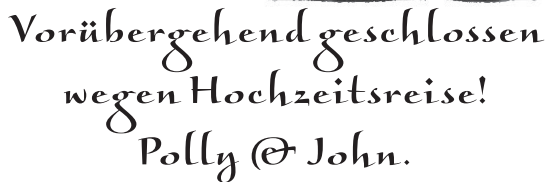 Vorübergehend geschlossen
wegen Hochzeitsreise!
Polly & John.